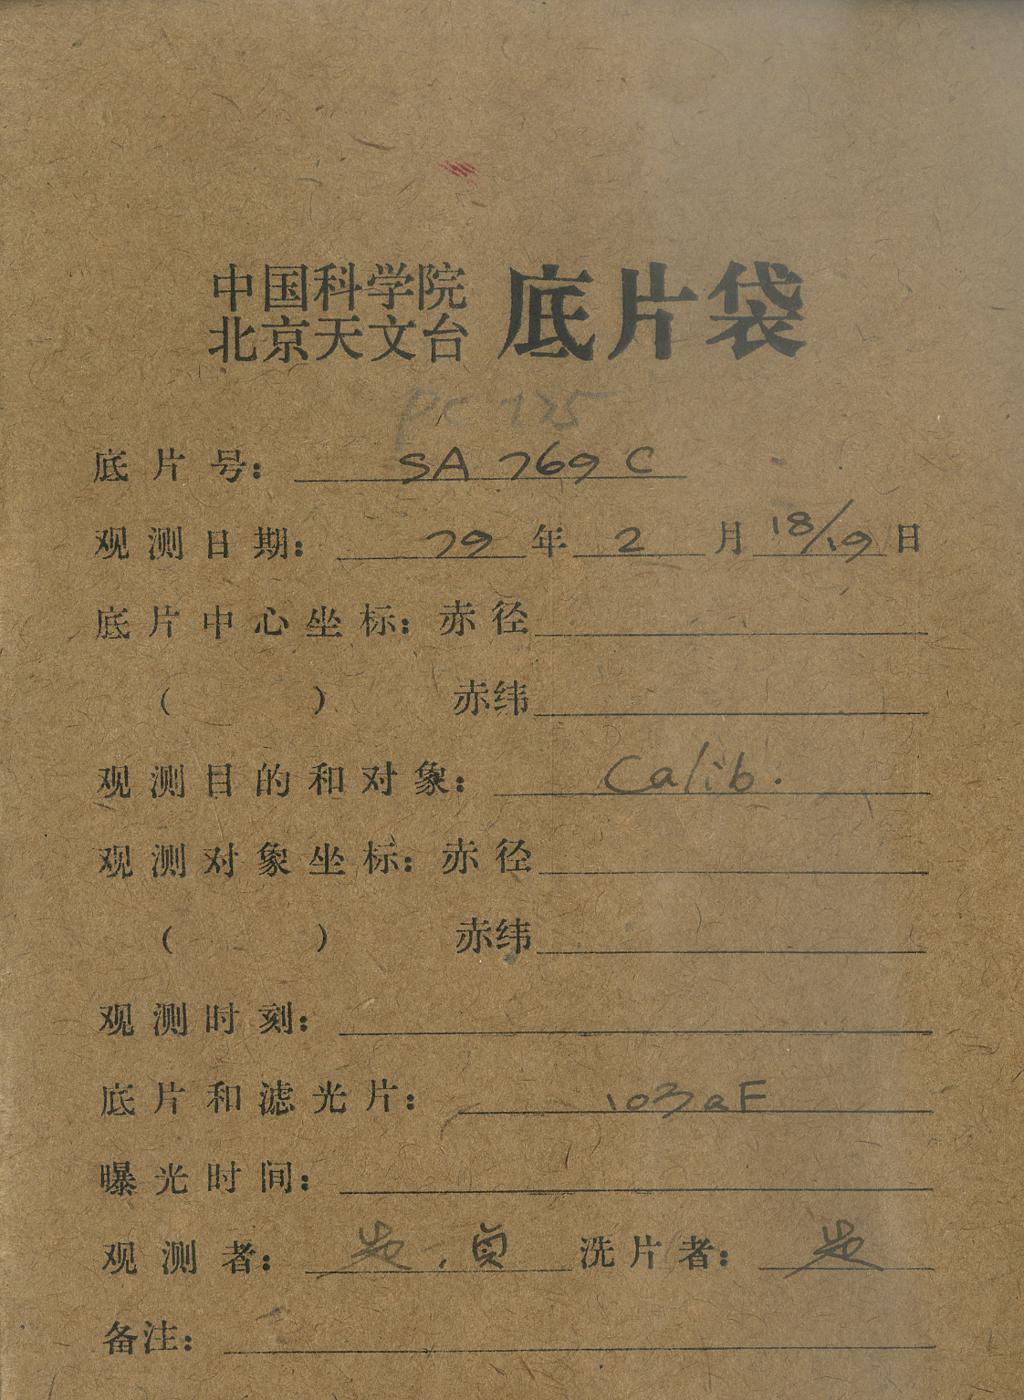 中国科学院
北京天文台 底片袋
底片号: SA 769 C
观测日期: 79 年 2 月 18/19 日
底片中心坐标: 赤径
( ) 赤纬
观测目的和对象: Calib.
观测对象坐标: 赤径
( ) 赤纬
观测时刻:
底片和滤光片: 103aF
曝光时间:
观测者: 洗片者:
备注: